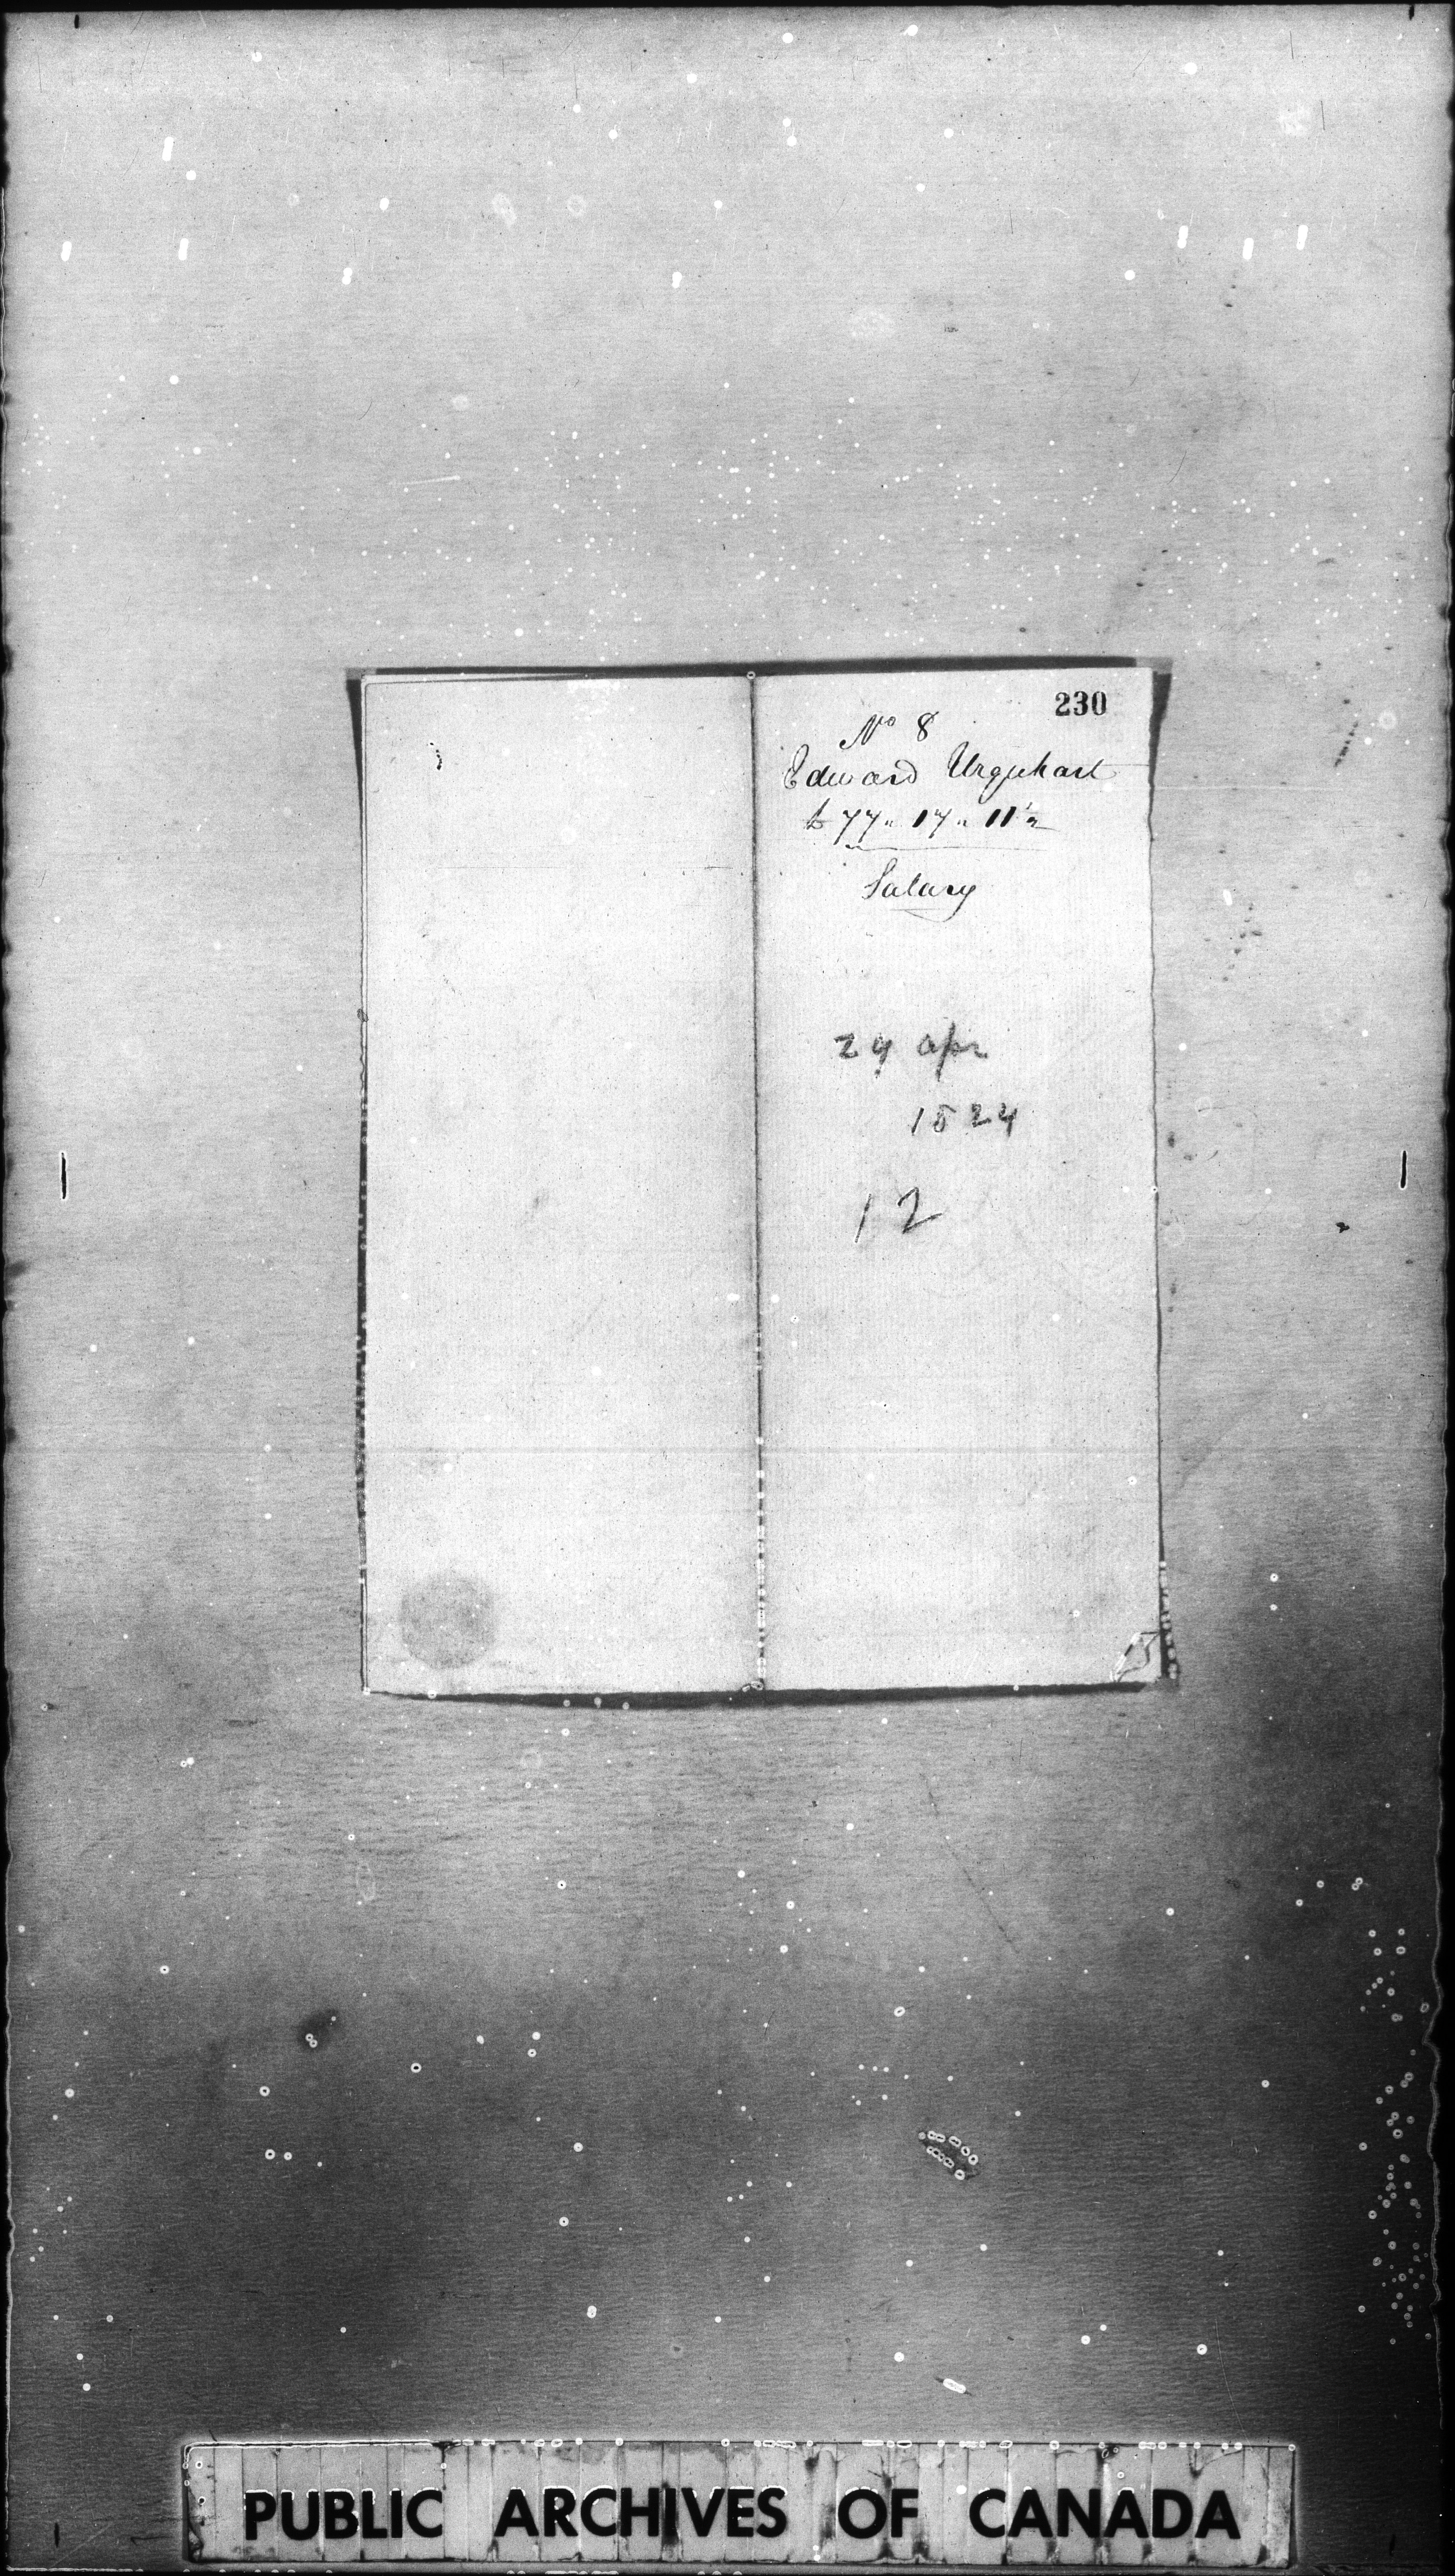 230
No 8
Edward Urquhart
£77" 17" 11½
Salary
24 apr
1824
12
PUBLIC ARCHIVES OF CANADA